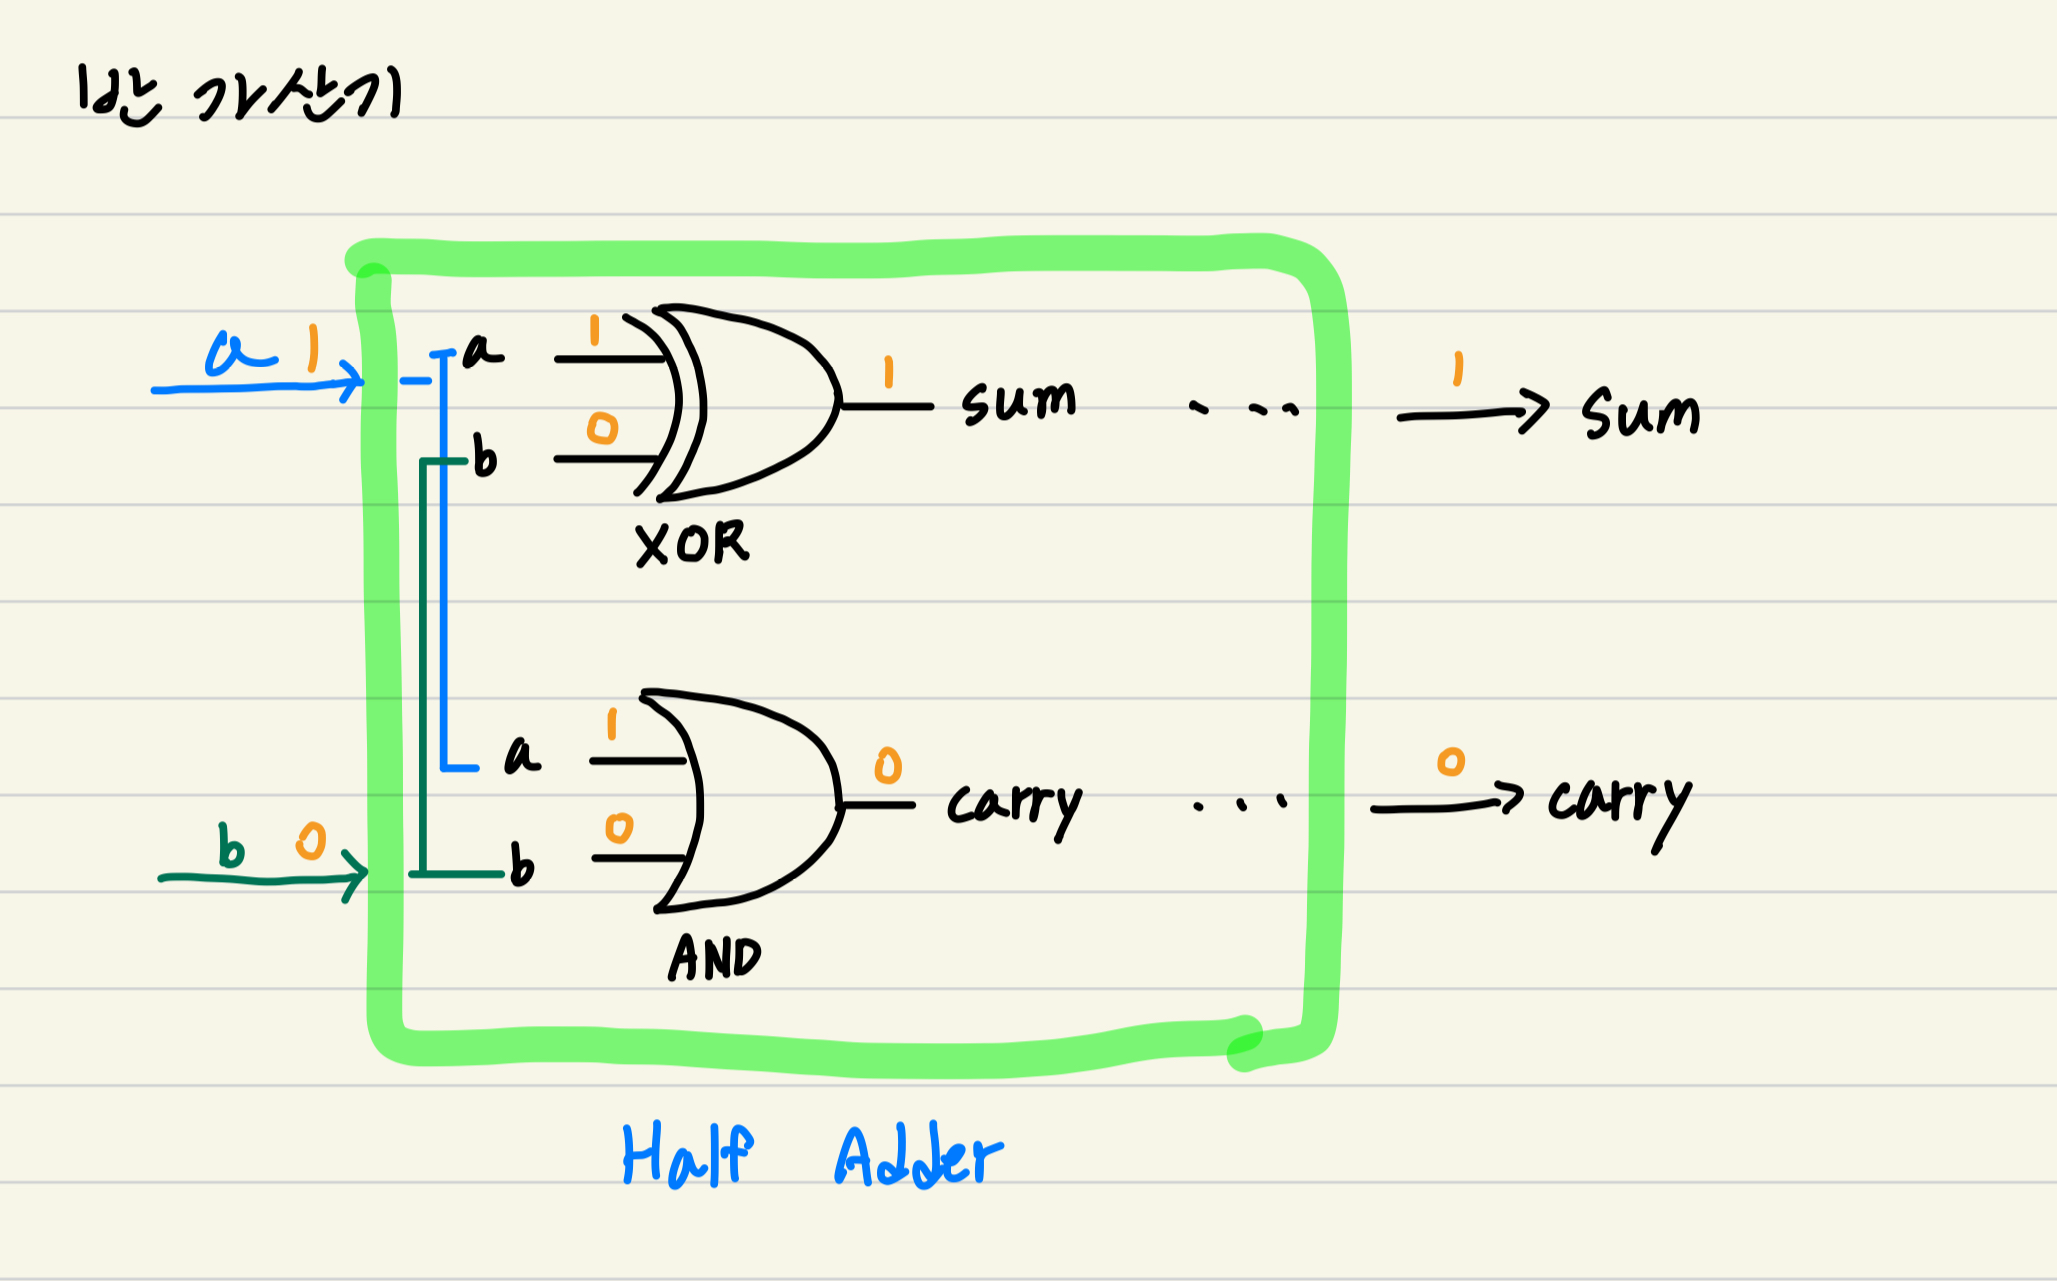 반 가산기
a 1
a 1
b 0
1 sum ... 1 sum
XOR
a 1
b 0
0 carry ... 0 carry
b 0
AND
Half Adder